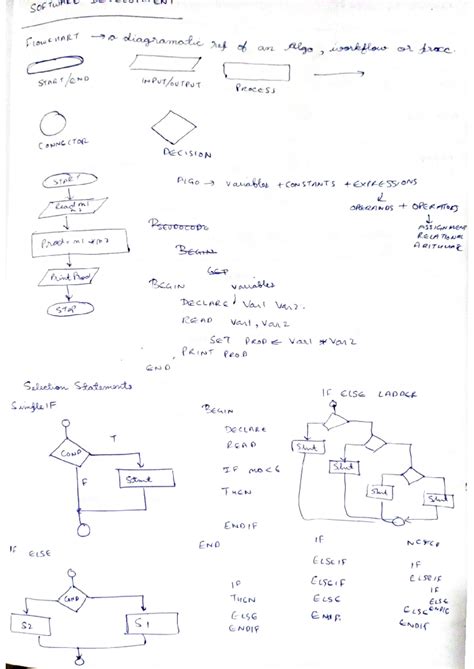 SOFTWARE DEVELOPMENT
FLOWCHART → a diagramatic rep of an Algo, workflow or proc.
START/END
INPUT/OUTPUT
PROCESS
CONNECTOR
DECISION
START
Read m1
Prod = m1 * m2
Print Prod
STOP
ALGO → variables + CONSTANTS + EXPRESSIONS
OPERANDS + OPERATORS
ASSIGNMENT
RELATIONAL
PSEUDOCODE
BEGIN
BEGIN
variables
DECLARE Var1 Var2.
READ Var1, Var2
SET PROD ← Var1 * Var2
PRINT PROD
END
Selection Statements
Simple IF
COND
T
F
Stmt
BEGIN
DECLARE
READ
IF
THEN
ENDIF
END
IF ELSE LADDER
Stmt
Stmt
Stmt
Stmt
IF ELSE
COND
S2
S1
IF
THEN
ELSE
ENDIF
IF
ELSEIF
ELSEIF
ELSE
IF
ELSEIF
IF
ELSE
ENDIF
ELSE
ENDIF